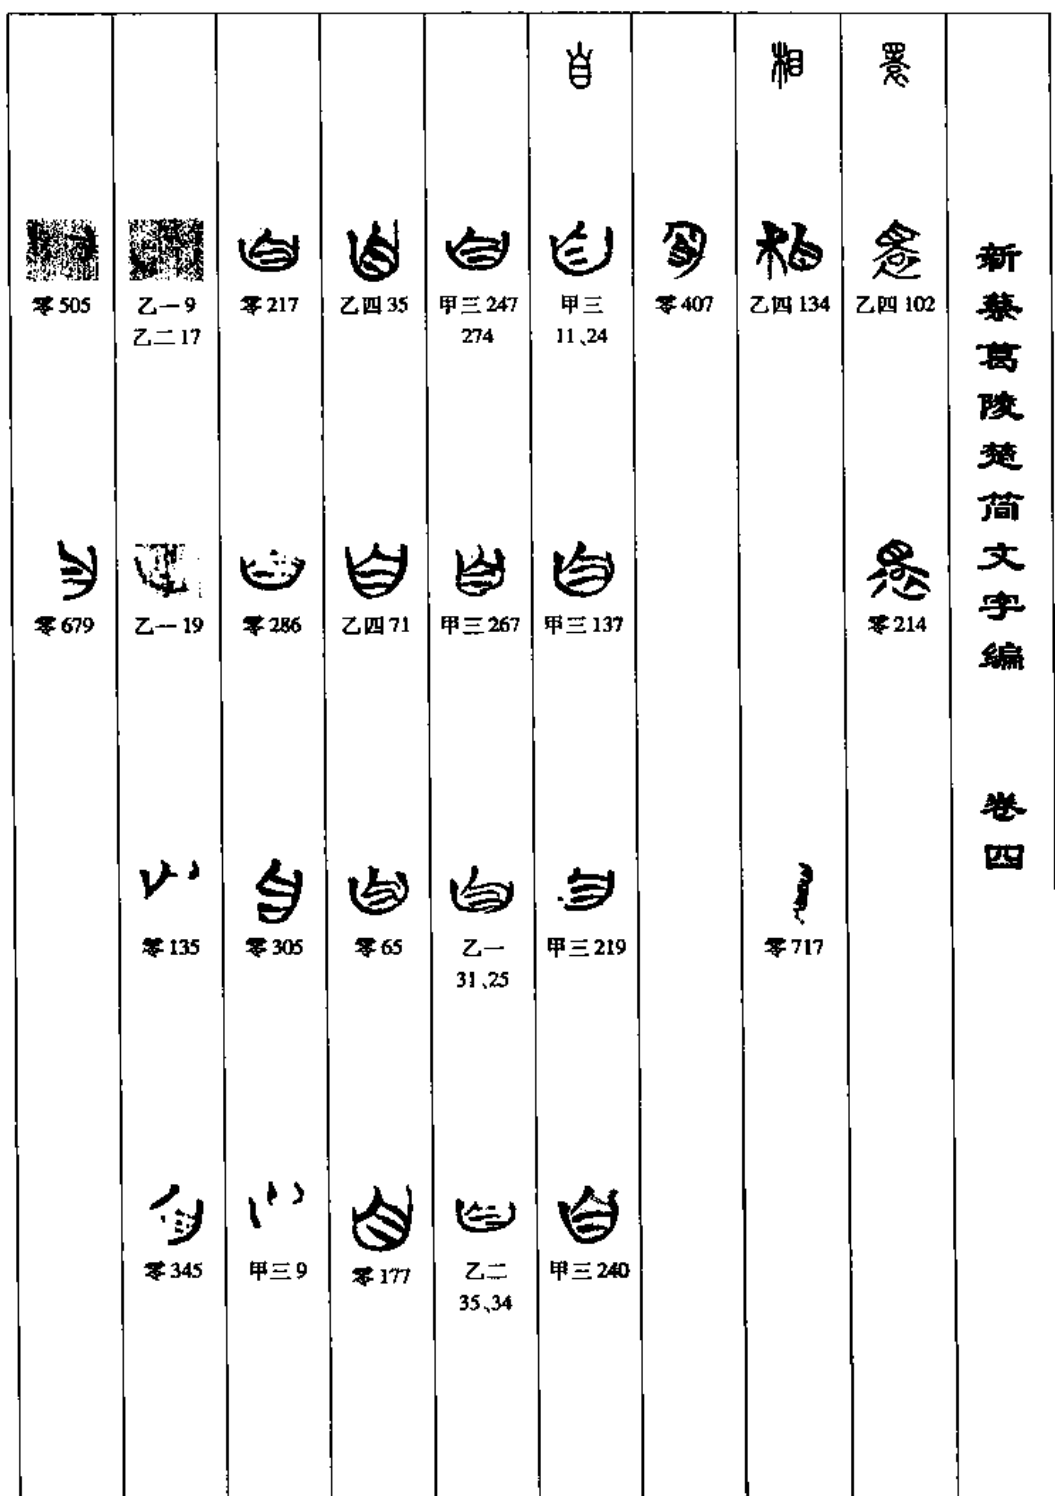 新蔡葛陵楚简文字编 卷四
乙四 102
零 214
相
乙四 134
零 717
零 407
甲三
11、24
甲三 137
甲三 219
甲三 240
甲三 247
274
甲三 267
乙一
31、25
乙二
35、34
乙四 35
乙四 71
零 65
零 177
零 217
零 286
零 305
甲三 9
乙一 9
乙二 17
乙一 19
零 135
零 345
零 505
零 679